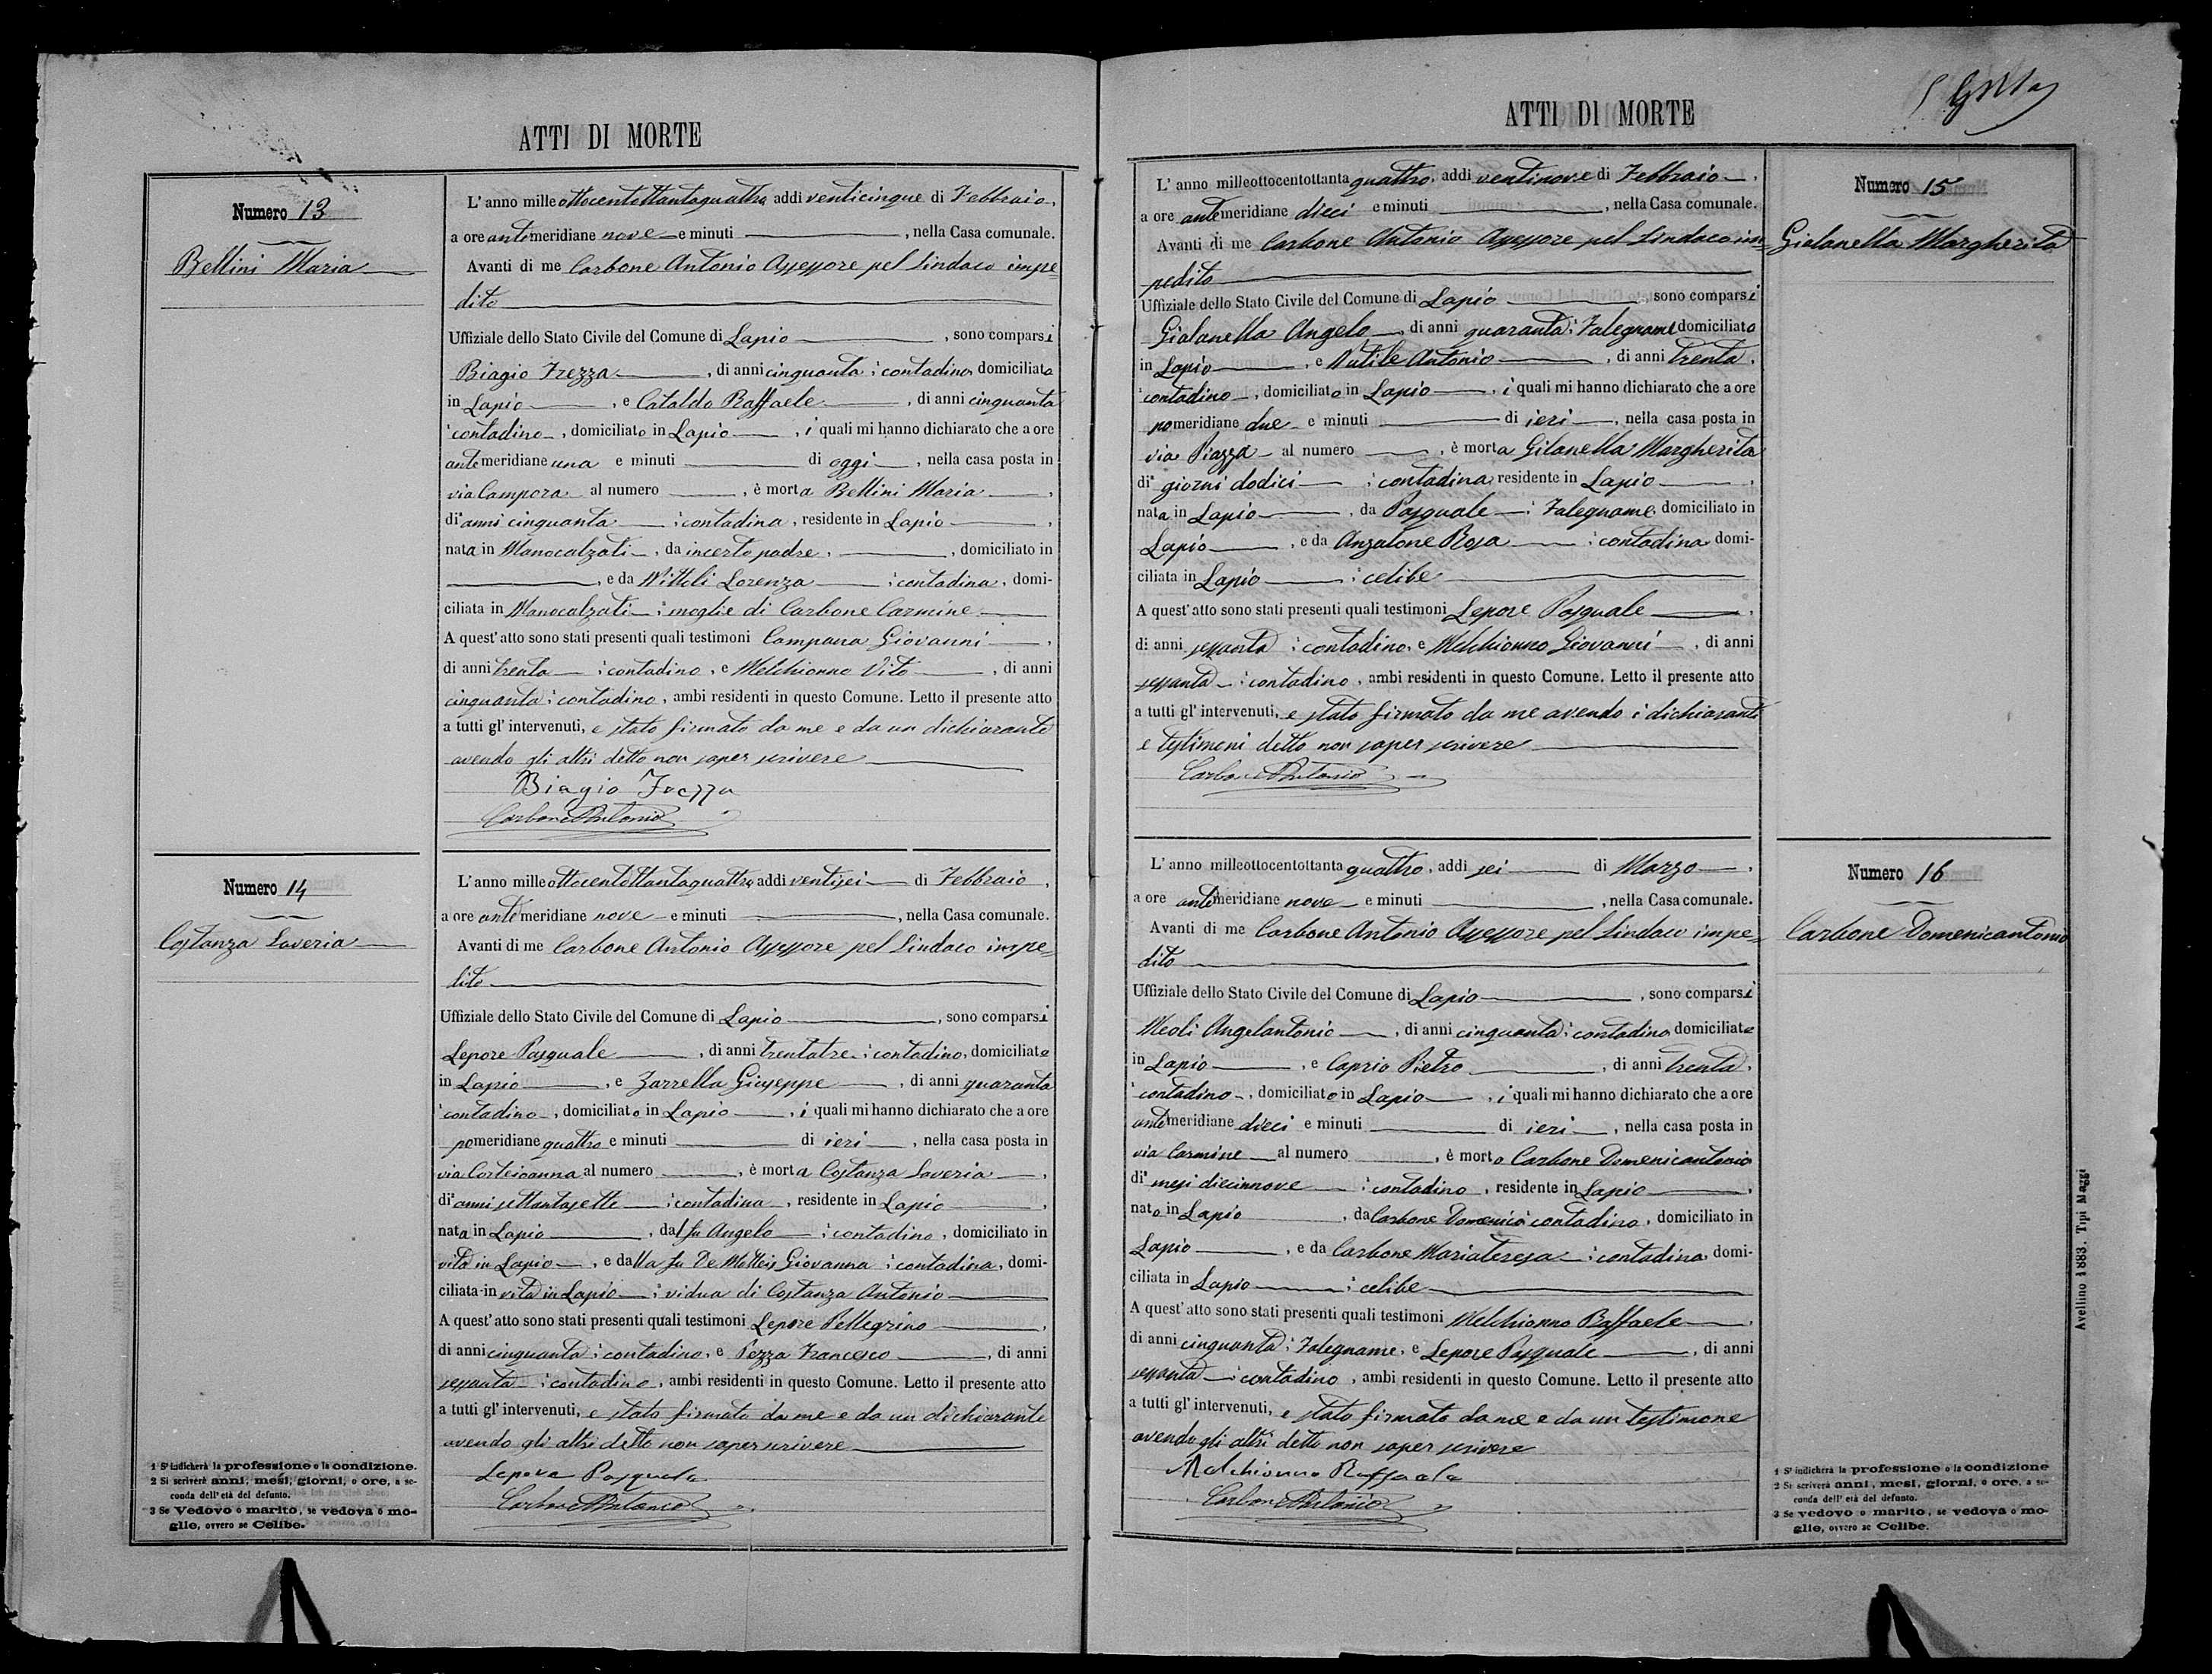 ATTI DI MORTE
Numero 13
Bellini Maria
L' anno mille ottocentottantaquattro, addì venticinque di Febbraio,
a ore antimeridiane nove e minuti , nella Casa comunale.
Avanti di me Carbone Antonio Assessore pel Sindaco impe=
dito
Uffiziale dello Stato Civile del Comune di Lapio , sono comparsi
Biagio Frezza , di anni cinquanta contadino, domiciliato
in Lapio , e Cataldo Raffaele , di anni cinquanta
contadino , domiciliato in Lapio , i quali mi hanno dichiarato che a ore
antemeridiane una e minuti di oggi , nella casa posta in
via Campora al numero , è morta Bellini Maria ,
di anni cinquanta contadina, residente in Lapio ,
nata in Manocalzati , da incerto padre, , domiciliato in
, e da Vittoli Lorenza contadina, domi-
ciliata in Manocalzati moglie di Carbone Carmine
A quest' atto sono stati presenti quali testimoni Campana Giovanni ,
di anni trenta contadino, e Melchionno Vito , di anni
cinquanta contadino, ambi residenti in questo Comune. Letto il presente atto
a tutti gl' intervenuti, e stato firmato da me e da un dichiarante
avendo gli altri detto non saper scrivere
Biagio Frezza
Carbone Antonio
Numero 14
Costanza Saveria
L' anno mille ottocentottantaquattro, addì ventisei di Febbraio,
a ore antimeridiane nove e minuti , nella Casa comunale.
Avanti di me Carbone Antonio Assessore pel Sindaco impe=
dito
Uffiziale dello Stato Civile del Comune di Lapio , sono comparsi
Lepore Pasquale , di anni trentatre contadino, domiciliato
in Lapio , e Zarrella Giuseppe , di anni quaranta
contadino , domiciliato in Lapio , i quali mi hanno dichiarato che a ore
pomeridiane quattro e minuti di ieri , nella casa posta in
via Corteioanna al numero , è morta Costanza Saveria ,
di anni settantasette contadina , residente in Lapio ,
nata in Lapio , dal fu Angelo contadino, domiciliato in
vita in Lapio , e dalla fu De Matteis Giovanna contadina, domi-
ciliata in vita in Lapio vidua di Costanza Antonio
A quest' atto sono stati presenti quali testimoni Lepore Pellegrino ,
di anni cinquanta contadino, e Pezza Francesco , di anni
sessanta contadino, ambi residenti in questo Comune. Letto il presente atto
a tutti gl' intervenuti, e stato firmato da me e da un dichiarante
avendo gli altri detto non saper scrivere
Lepore Pasquale
Carbone Antonio
1 S' indicherà la professione o la condizione.
2 Si scriverà anni, mesi, giorni, o ore, a se-
conda dell' età del defunto.
3 Se Vedovo o marito, se vedova o mo-
glie, ovvero se Celibe.
ATTI DI MORTE
Numero 15
Gialanella Margherita
L' anno milleottocentottanta quattro, addì ventinove di Febbraio ,
a ore antemeridiane dieci e minuti , nella Casa comunale.
Avanti di me Carbone Antonio Assessore pel Sindaco im=
pedito
Uffiziale dello Stato Civile del Comune di Lapio , sono comparsi
Gialanella Angelo , di anni quaranta Falegname domiciliato
in Lapio , e Nutile Antonio , di anni trenta,
contadino , domiciliato in Lapio , i quali mi hanno dichiarato che a ore
pomeridiane due e minuti di ieri , nella casa posta in
via Piazza al numero , è morta Gilanella Margherita
di giorni dodici contadina residente in Lapio ,
nata in Lapio , da Pasquale Falegname, domiciliato in
Lapio , e da Anzalone Rosa contadina domi-
ciliata in Lapio celibe
A quest' atto sono stati presenti quali testimoni Lepore Pasquale ,
di anni sessanta contadino, e Melchionno Giovanni , di anni
sessanta contadino, ambi residenti in questo Comune. Letto il presente atto
a tutti gl' intervenuti, e stato firmato da me avendo i dichiaranti
e testimoni detto non saper scrivere
Carbone Antonio
Numero 16
Carbone Domenicantonio
L' anno milleottocentottanta quattro, addì sei di Marzo ,
a ore antimeridiane nove e minuti , nella Casa comunale.
Avanti di me Carbone Antonio Assessore pel Sindaco impe=
dito
Uffiziale dello Stato Civile del Comune di Lapio , sono comparsi
Meoli Angelantonio , di anni cinquanta contadino domiciliato
in Lapio , e Caprio Pietro , di anni trenta,
contadino , domiciliato in Lapio , i quali mi hanno dichiarato che a ore
antimeridiane dieci e minuti di ieri , nella casa posta in
via Carmine al numero , è morto Carbone Domenicantonio
di mesi diecinnove contadino , residente in Lapio ,
nato in Lapio , da Carbone Domenico contadino, domiciliato in
Lapio , e da Carbone Mariateresa contadina domi-
ciliata in Lapio celibe
A quest' atto sono stati presenti quali testimoni Melchionno Raffaele ,
di anni cinquanta Falegname, e Lepore Pasquale , di anni
sessanta contadino , ambi residenti in questo Comune. Letto il presente atto
a tutti gl' intervenuti, e stato firmato da me e da un testimone
avendo gli altri detto non saper scrivere
Melchionno Raffaele
Carbone Antonio
1 S' indicherà la professione o la condizione
2 Si scriverà anni, mesi, giorni, o ore, a se-
conda dell' età del defunto.
3 Se vedovo o marito, se vedova o mo-
glie, ovvero se Celibe.
Avellino 1883. Tipi Maggi